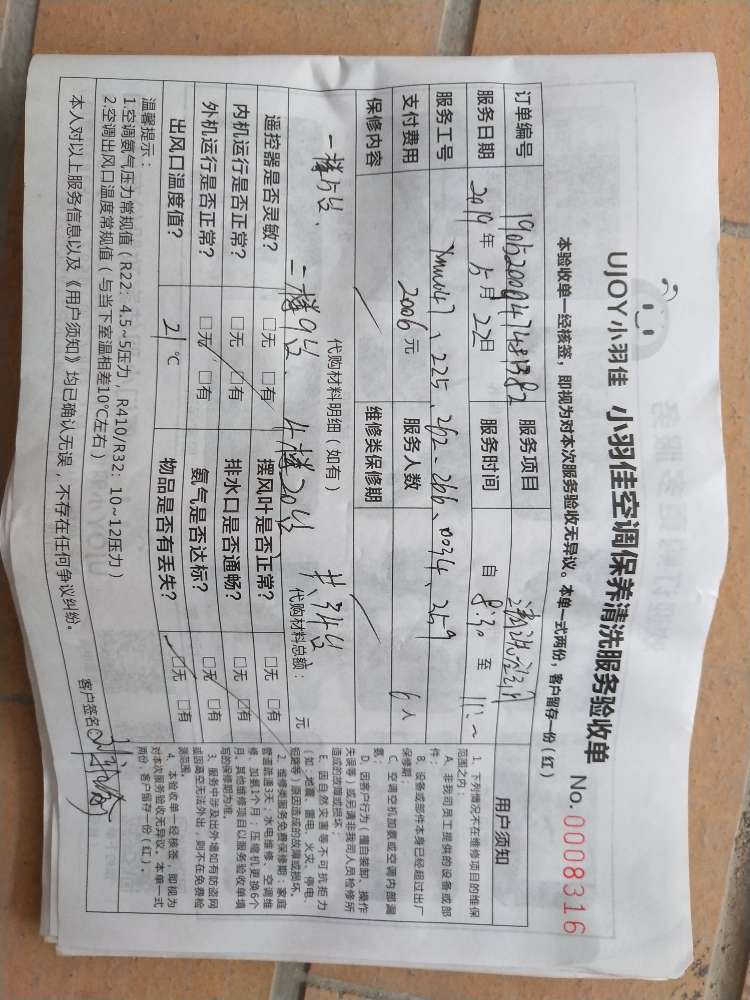 UJOY小羽佳 小羽佳空调保养清洗服务验收单 No.0008316
本验收单一经核签，即视为对本次服务验收无异议。本单一式两份，客户留存一份（红）
订单编号 服务项目
服务日期 2019年5月22日 服务时间 自 8:30 至
服务工号 、225、262、266、0034、259
支付费用 2006元 服务人数 6人
保修内容 维修类保修期
代购材料明细（如有） 代购材料总额： 元
一楼5台、二楼9台、4楼20台 共34台
遥控器是否灵敏? □无 □有 摆风叶是否正常? □无 □有
内机运行是否正常? □无 □有 排水口是否通畅? □无 □有
外机运行是否正常? □无 □有 氨气是否达标? □无 □有
出风口温度值? 21℃ 物品是否有丢失? □无 □有
温馨提示：
1.空调氨气压力常规值（R22：4.5~5压力，R410/R32：10~12压力）
2.空调出风口温度常规值（与当下室温相差10℃左右）
本人对以上服务信息以及《用户须知》均已确认无误，不存在任何争议纠纷。 客户签名：
用户须知
1、下列情况不在维修项目的维保
范围之内：
A、非我司员工提供的设备或部
件；
B、设备或部件本身已经超过出厂
保修期；
C、空调空机加氨或空调内部漏
氨；
D、因客户行为（擅自装卸、操作
失误等）或另请非我司人员检修所
造成的故障或损坏；
E、因自然灾害等不可抗拒力
（如：地震、雷电、火灾、停电、
短路等）原因造成的故障或损坏。
2、维修类服务免费保修期：家庭
管道疏通3天；水电维修、空调维
修、加氨1个月；压缩机更换6个
月；其他维修项目以服务验收单填
写的保修期为准。
3、服务中涉及出外墙如有防盗网
或因高空无法外出，则不在免费检
测范围。
4、本验收单一经核签，即视为
对本次服务验收无异议。本单一式
两份，客户留存一份（红）。